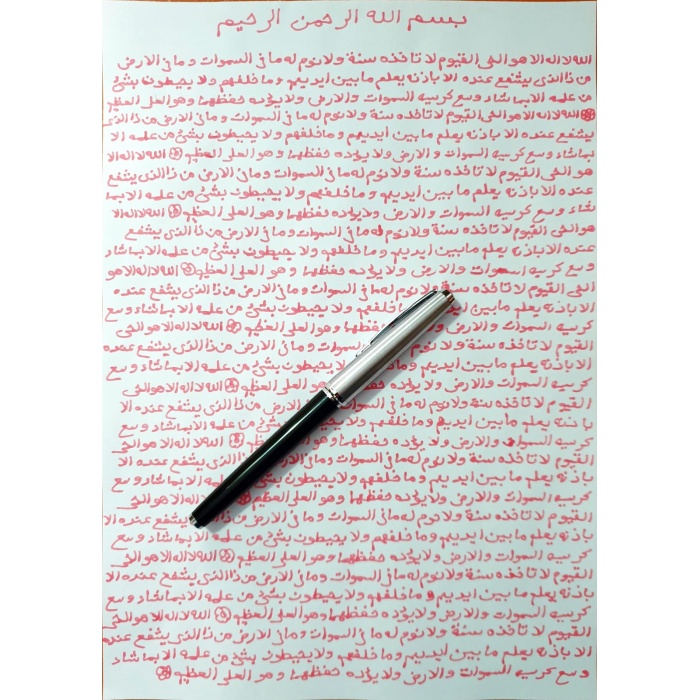 بسم الله الرحمن الرحيم
الله لا اله الا هو الحى القيوم لا تاخذه سنة ولا نوم له ما فى السموات وما فى الارض
من ذا الذى يشفع عنده الا باذنه يعلم ما بين ايديهم وما خلفهم ولا يحيطون بشئ
من علمه الا بما شاء وسع كرسيه السموات والارض ولا يؤده حفظهما وهو العلى العظيم
۞ الله لا اله الا هو الحى القيوم لا تاخذه سنة ولا نوم له ما فى السموات وما فى الارض من ذا الذى
يشفع عنده الا باذنه يعلم ما بين ايديهم وما خلفهم ولا يحيطون بشئ من علمه الا
بما شاء وسع كرسيه السموات والارض ولا يؤده حفظهما وهو العلى العظيم ۞ الله لا اله الا
هو الحى القيوم لا تاخذه سنة ولا نوم له ما فى السموات وما فى الارض من ذا الذى يشفع
عنده الا باذنه يعلم ما بين ايديهم وما خلفهم ولا يحيطون بشئ من علمه الا بما
شاء وسع كرسيه السموات والارض ولا يؤده حفظهما وهو العلى العظيم ۞ الله لا اله الا
هو الحى القيوم لا تاخذه سنة ولا نوم له ما فى السموات وما فى الارض من ذا الذى يشفع
عنده الا باذنه يعلم ما بين ايديهم وما خلفهم ولا يحيطون بشئ من علمه الا بما شاء
وسع كرسيه السموات والارض ولا يؤده حفظهما وهو العلى العظيم ۞ الله لا اله الا هو
الحى القيوم لا تاخذه سنة ولا نوم له ما فى السموات وما فى الارض من ذا الذى يشفع عنده
الا باذنه يعلم ما بين ايديهم وما خلفهم ولا يحيطون بشئ من علمه الا بما شاء وسع
كرسيه السموات والارض ولا يؤده حفظهما وهو العلى العظيم ۞ الله لا اله الا هو الحى
القيوم لا تاخذه سنة ولا نوم فى السموات وما فى الارض من ذا الذى يشفع عنده الا
باذنه يعلم ما بين ايديهم ولا يحيطون بشئ من علمه الا بما شاء وسع
كرسيه السموات والارض ولا يؤده حفظهما وهو العلى العظيم ۞ الله لا اله الا هو الحى
القيوم لا تاخذه سنة ولا نوم له ما فى السموات وما فى الارض من ذا الذى يشفع عنده الا
باذنه يعلم ما بين ايديهم وما خلفهم ولا بشئ من علمه الا بما شاء وسع
كرسيه السموات والارض ولا يؤده حفظهما العلى العظيم ۞ الله لا اله الا هو الحى
القيوم لا تاخذه سنة ولا نوم له ما فى السموات وما فى من ذا الذى يشفع عنده الا
باذنه يعلم ما بين ايديهم وما خلفهم ولا يحيطون من علمه الا بما شاء وسع
كرسيه السموات والارض ولا يؤده حفظهما وهو العلى العظيم الله لا اله الا هو الحى
القيوم لا تاخذه سنة ولا نوم له ما فى السموات وما فى الارض من ذا الذى يشفع عنده الا
باذنه يعلم ما بين ايديهم وما خلفهم ولا يحيطون بشئ من علمه الا بما شاء وسع
كرسيه السموات والارض ولا يؤده حفظهما وهو العلى العظيم ۞ الله لا اله الا هو الحى
القيوم لا تاخذه سنة ولا نوم له ما فى السموات وما فى الارض من ذا الذى يشفع عنده الا
باذنه يعلم ما بين ايديهم وما خلفهم ولا يحيطون بشئ من علمه الا بما شاء وسع
كرسيه السموات والارض ولا يؤده حفظهما وهو العلى العظيم ۞ الله لا اله الا هو الحى
القيوم لا تاخذه سنة ولا نوم له ما فى السموات وما فى الارض من ذا الذى يشفع عنده
الا باذنه يعلم ما بين ايديهم وما خلفهم ولا يحيطون بشئ من علمه الا بما شاء
وسع كرسيه السموات والارض ولا يؤده حفظهما وهو العلى العظيم ۞